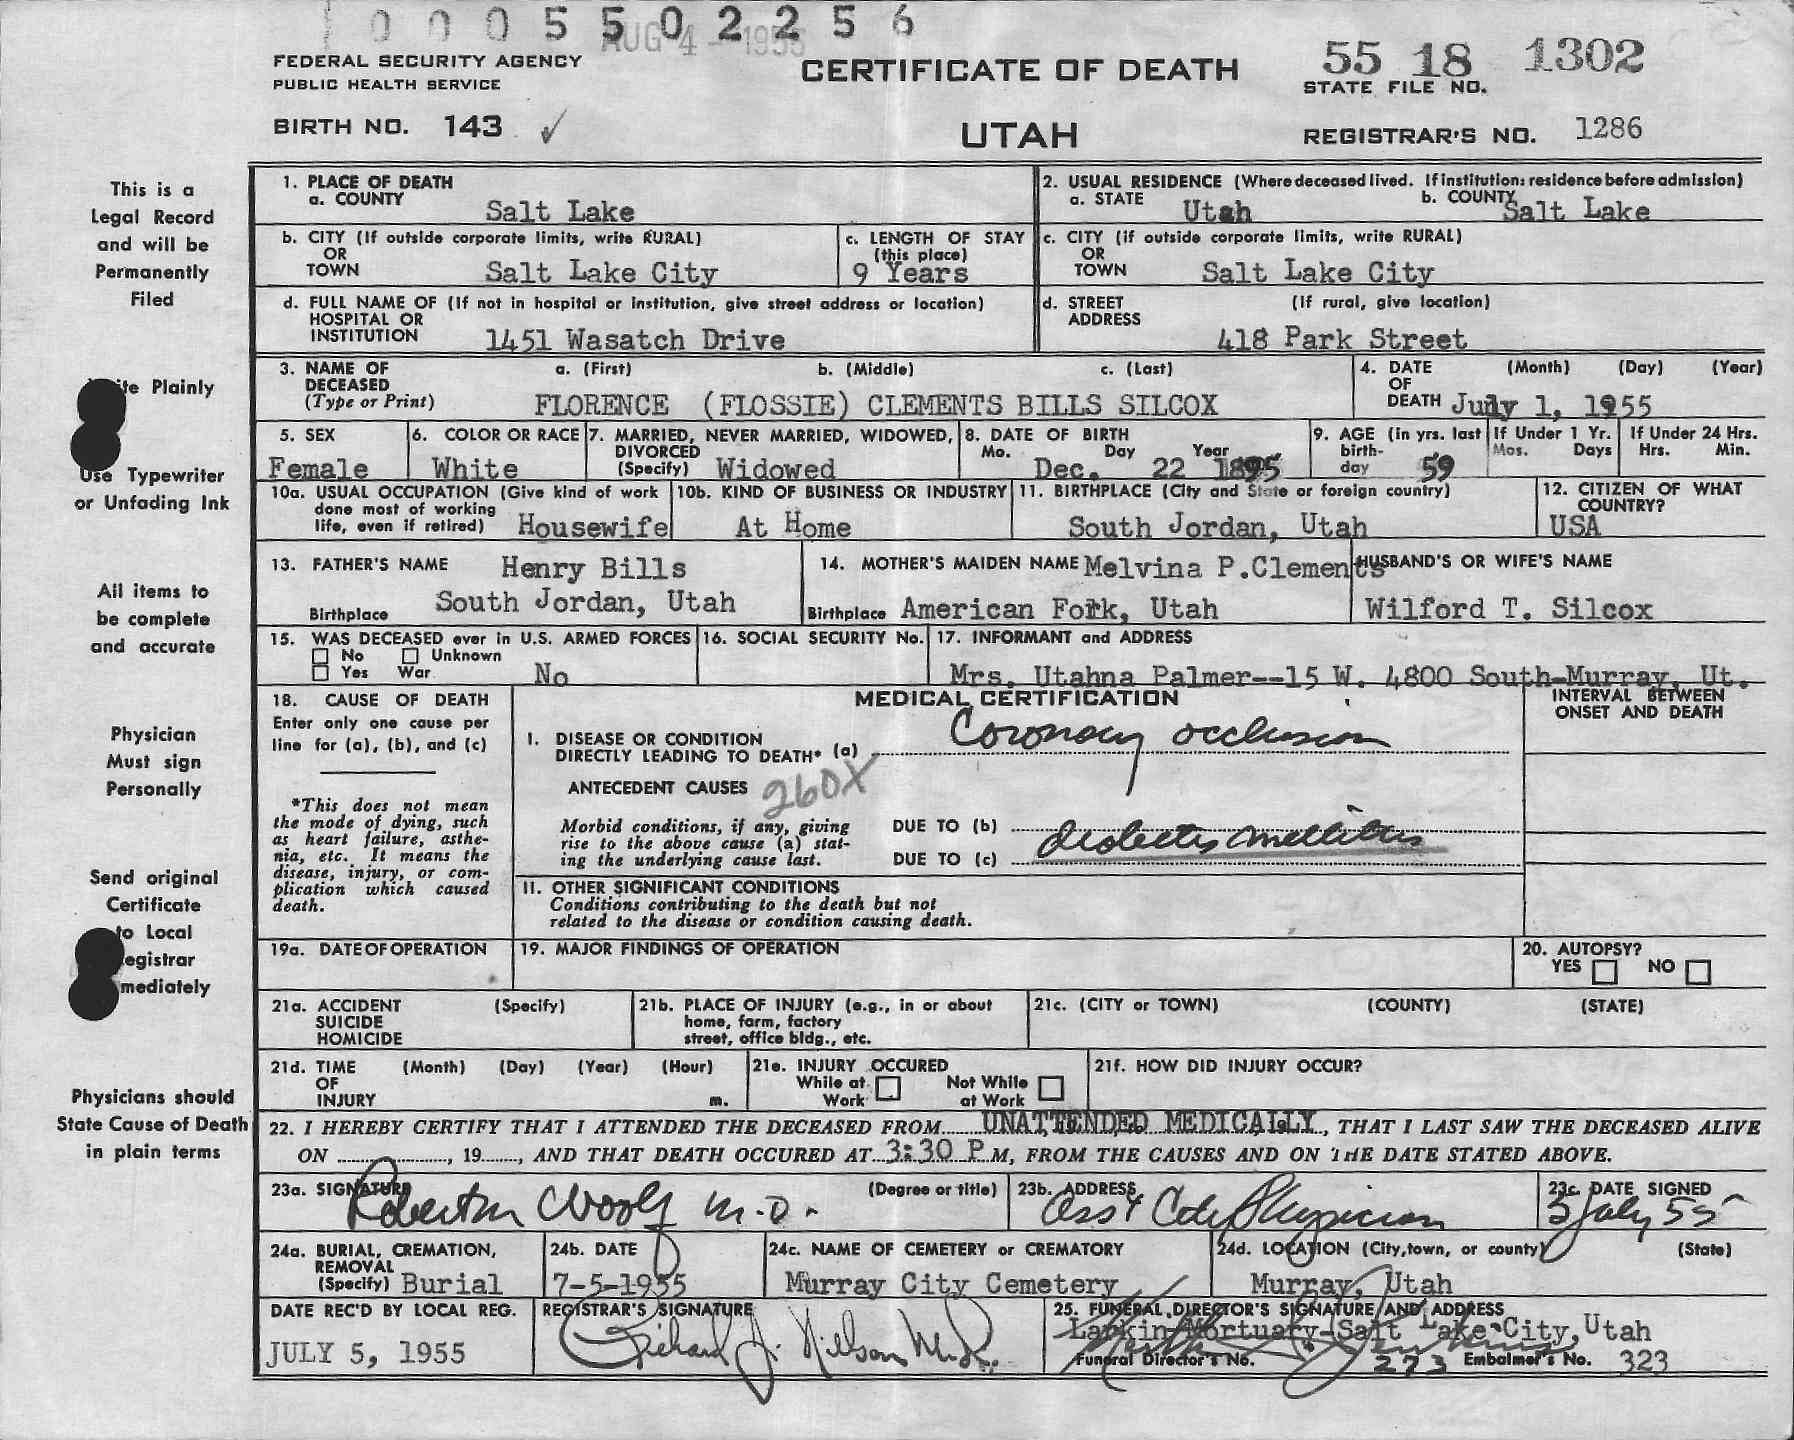 0005502256
AUG 4 - 1955
FEDERAL SECURITY AGENCY
PUBLIC HEALTH SERVICE
CERTIFICATE OF DEATH
55 18 1302
STATE FILE NO.
BIRTH NO. 143 ✓
UTAH
REGISTRAR'S NO. 1286
This is a
Legal Record
and will be
Permanently
Filed
Plainly
Use Typewriter
or Unfading Ink
All items to
be complete
and accurate
Physician
Must sign
Personally
Send original
Certificate
to Local
egistrar
mediately
Physicians should
State Cause of Death
in plain terms
1. PLACE OF DEATH
a. COUNTY
Salt Lake
2. USUAL RESIDENCE (Where deceased lived. If institution: residence before admission)
a. STATE Utah b. COUNTY Salt Lake
b. CITY (If outside corporate limits, write RURAL)
OR
TOWN Salt Lake City
c. LENGTH OF STAY
(this place)
9 Years
c. CITY (if outside corporate limits, write RURAL)
OR
TOWN Salt Lake City
d. FULL NAME OF (If not in hospital or institution, give street address or location)
HOSPITAL OR
INSTITUTION 1451 Wasatch Drive
d. STREET (If rural, give location)
ADDRESS
418 Park Street
3. NAME OF a. (First) b. (Middle) c. (Last)
DECEASED
(Type or Print) FLORENCE (FLOSSIE) CLEMENTS BILLS SILCOX
4. DATE (Month) (Day) (Year)
OF
DEATH July 1, 1955
5. SEX
Female
6. COLOR OR RACE
White
7. MARRIED, NEVER MARRIED, WIDOWED,
DIVORCED
(Specify) Widowed
8. DATE OF BIRTH
Mo. Day Year
Dec. 22 1895
9. AGE (in yrs. last
birth-
day 59
If Under 1 Yr.
Mos. Days
If Under 24 Hrs.
Hrs. Min.
10a. USUAL OCCUPATION (Give kind of work
done most of working
life, even if retired) Housewife
10b. KIND OF BUSINESS OR INDUSTRY
At Home
11. BIRTHPLACE (City and State or foreign country)
South Jordan, Utah
12. CITIZEN OF WHAT
COUNTRY?
USA
13. FATHER'S NAME Henry Bills
Birthplace South Jordan, Utah
14. MOTHER'S MAIDEN NAME Melvina P.Clements
Birthplace American Fork, Utah
HUSBAND'S OR WIFE'S NAME
Wilford T. Silcox
15. WAS DECEASED ever in U.S. ARMED FORCES
No Unknown
Yes War No
16. SOCIAL SECURITY No.
17. INFORMANT and ADDRESS
Mrs. Utahna Palmer--15 W. 4800 South-Murray, Ut.
18. CAUSE OF DEATH
Enter only one cause per
line for (a), (b), and (c)
*This does not mean
the mode of dying, such
as heart failure, asthe-
nia, etc. It means the
disease, injury, or com-
plication which caused
death.
MEDICAL CERTIFICATION
INTERVAL BETWEEN
ONSET AND DEATH
I. DISEASE OR CONDITION
DIRECTLY LEADING TO DEATH* (a) Coronary occlusion
ANTECEDENT CAUSES 260X
Morbid conditions, if any, giving
rise to the above cause (a) stat-
ing the underlying cause last.
DUE TO (b) diabetes mellitus
DUE TO (c)
II. OTHER SIGNIFICANT CONDITIONS
Conditions contributing to the death but not
related to the disease or condition causing death.
19a. DATE OF OPERATION
19. MAJOR FINDINGS OF OPERATION
20. AUTOPSY?
YES NO
21a. ACCIDENT (Specify)
SUICIDE
HOMICIDE
21b. PLACE OF INJURY (e.g., in or about
home, farm, factory
street, office bldg., etc.
21c. (CITY or TOWN) (COUNTY) (STATE)
21d. TIME (Month) (Day) (Year) (Hour)
OF
INJURY m.
21e. INJURY OCCURED
While at Not While
Work at Work
21f. HOW DID INJURY OCCUR?
22. I HEREBY CERTIFY THAT I ATTENDED THE DECEASED FROM UNATTENDED MEDICALLY, THAT I LAST SAW THE DECEASED ALIVE
ON ..............., 19......, AND THAT DEATH OCCURED AT 3:30 P M, FROM THE CAUSES AND ON THE DATE STATED ABOVE.
23a. SIGNATURE (Degree or title)
M.D.
23b. ADDRESS
Ass't City Physician
23c. DATE SIGNED
3 July 55
24a. BURIAL, CREMATION,
REMOVAL
(Specify) Burial
24b. DATE
7-5-1955
24c. NAME OF CEMETERY or CREMATORY
Murray City Cemetery
24d. LOCATION (City, town, or county) (State)
Murray, Utah
DATE REC'D BY LOCAL REG.
JULY 5, 1955
REGISTRAR'S SIGNATURE
Richard J. Nelson M.D.
25. FUNERAL DIRECTOR'S SIGNATURE AND ADDRESS
Larkin Mortuary-Salt Lake City, Utah
Funeral Director's No. 273 Embalmer's No. 323